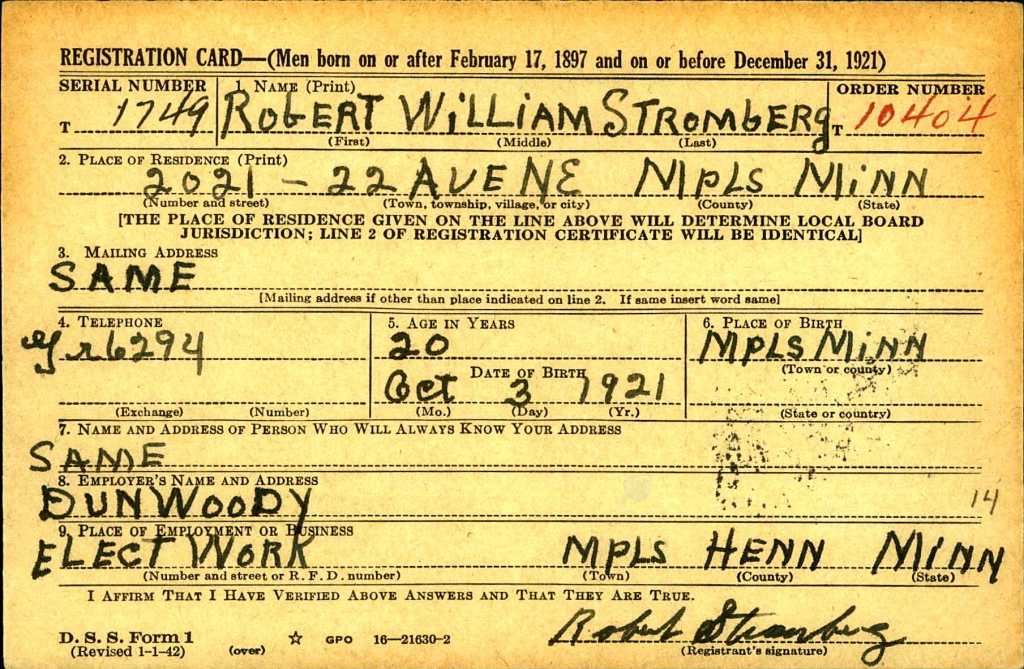 REGISTRATION CARD—(Men born on or after February 17, 1897 and on or before December 31, 1921)
SERIAL NUMBER 1. NAME (Print) ORDER NUMBER
T 1749 ROBERT WILLIAM STROMBERG T 10404
(First) (Middle) (Last)
2. PLACE OF RESIDENCE (Print)
2021 - 22 AVE NE MPLS MINN
(Number and street) (Town, township, village, or city) (County) (State)
[THE PLACE OF RESIDENCE GIVEN ON THE LINE ABOVE WILL DETERMINE LOCAL BOARD
JURISDICTION; LINE 2 OF REGISTRATION CERTIFICATE WILL BE IDENTICAL]
3. MAILING ADDRESS
SAME
[Mailing address if other than place indicated on line 2. If same insert word same]
4. TELEPHONE 5. AGE IN YEARS 6. PLACE OF BIRTH
Gr 6294 20 MPLS MINN
DATE OF BIRTH (Town or county)
Oct 3 1921
(Exchange) (Number) (Mo.) (Day) (Yr.) (State or country)
7. NAME AND ADDRESS OF PERSON WHO WILL ALWAYS KNOW YOUR ADDRESS
SAME
8. EMPLOYER'S NAME AND ADDRESS
DUNWOODY 14
9. PLACE OF EMPLOYMENT OR BUSINESS
ELECT WORK MPLS HENN MINN
(Number and street or R. F. D. number) (Town) (County) (State)
I AFFIRM THAT I HAVE VERIFIED ABOVE ANSWERS AND THAT THEY ARE TRUE.
D. S. S. Form 1 ☆ GPO 16—21630-2 Robert Stromberg
(Revised 1-1-42) (over) (Registrant's signature)